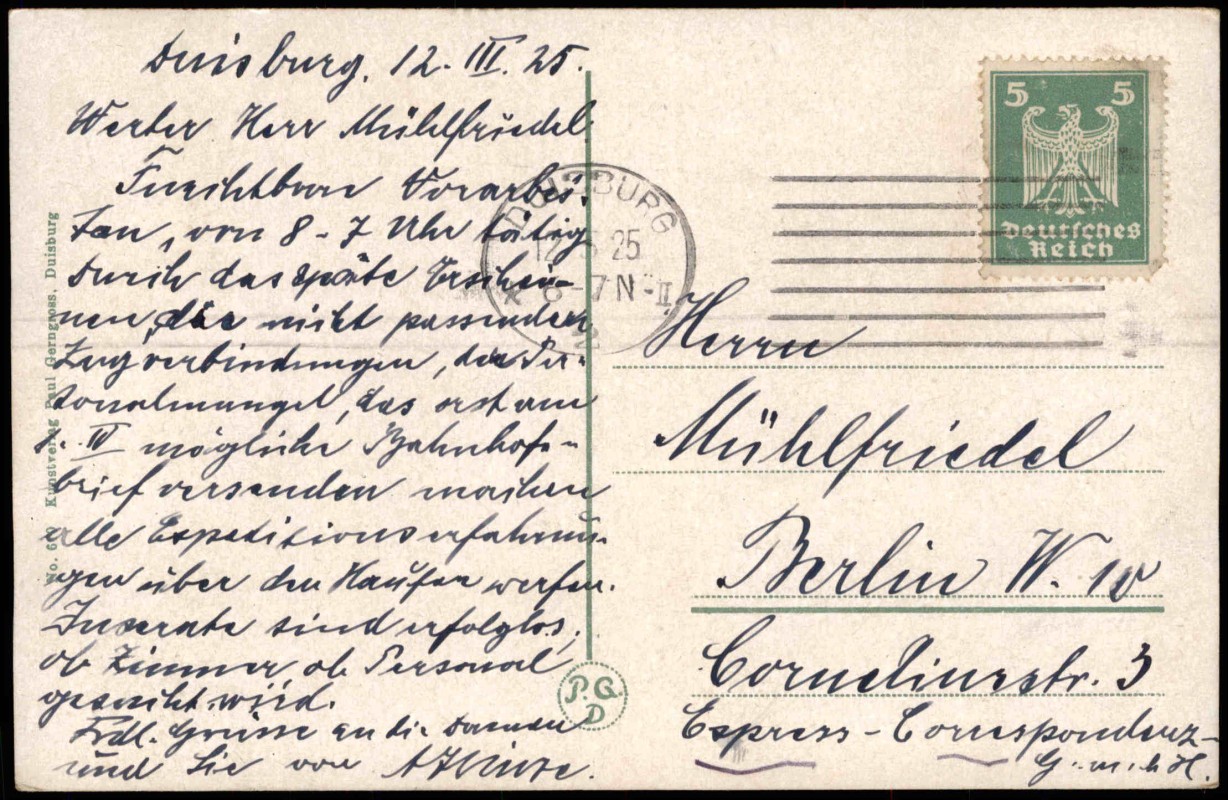 Duisburg, 12. III. 25.
Werter Herr Mühlfriedel
Furchtbare Vorarbei-
ten, von 8 - 7 Uhr tätig
Durch das späte Erschei-
nen, die nicht passenden
Zugverbindungen, der Per-
sonalmangel, das erst am
IV mögliche Bahnhofs-
brief versenden machen
alle Expeditionserfahrun-
gen über den Haufen werfen.
Inserate sind erfolglos,
ob Zimmer, ob Personal
gesucht wird.
Frdl. Grüsse an die Damen
und Sie von
No. Kunstverlag Paul Gerngross, Duisburg
DUISBURG
25
6-7 N
5 5
Deutsches
Reich
Herrn
Mühlfriedel
Berlin W. 10
Corneliusstr. 3
Express-Correspondenz
G.m.b.H.
P.G.
D